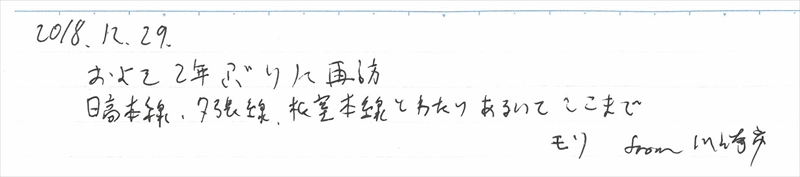 2018.12.29.
およそ2年ぶりに再訪
日高本線、夕張線、根室本線とわたりあるいてここまで
モリ from 川崎市